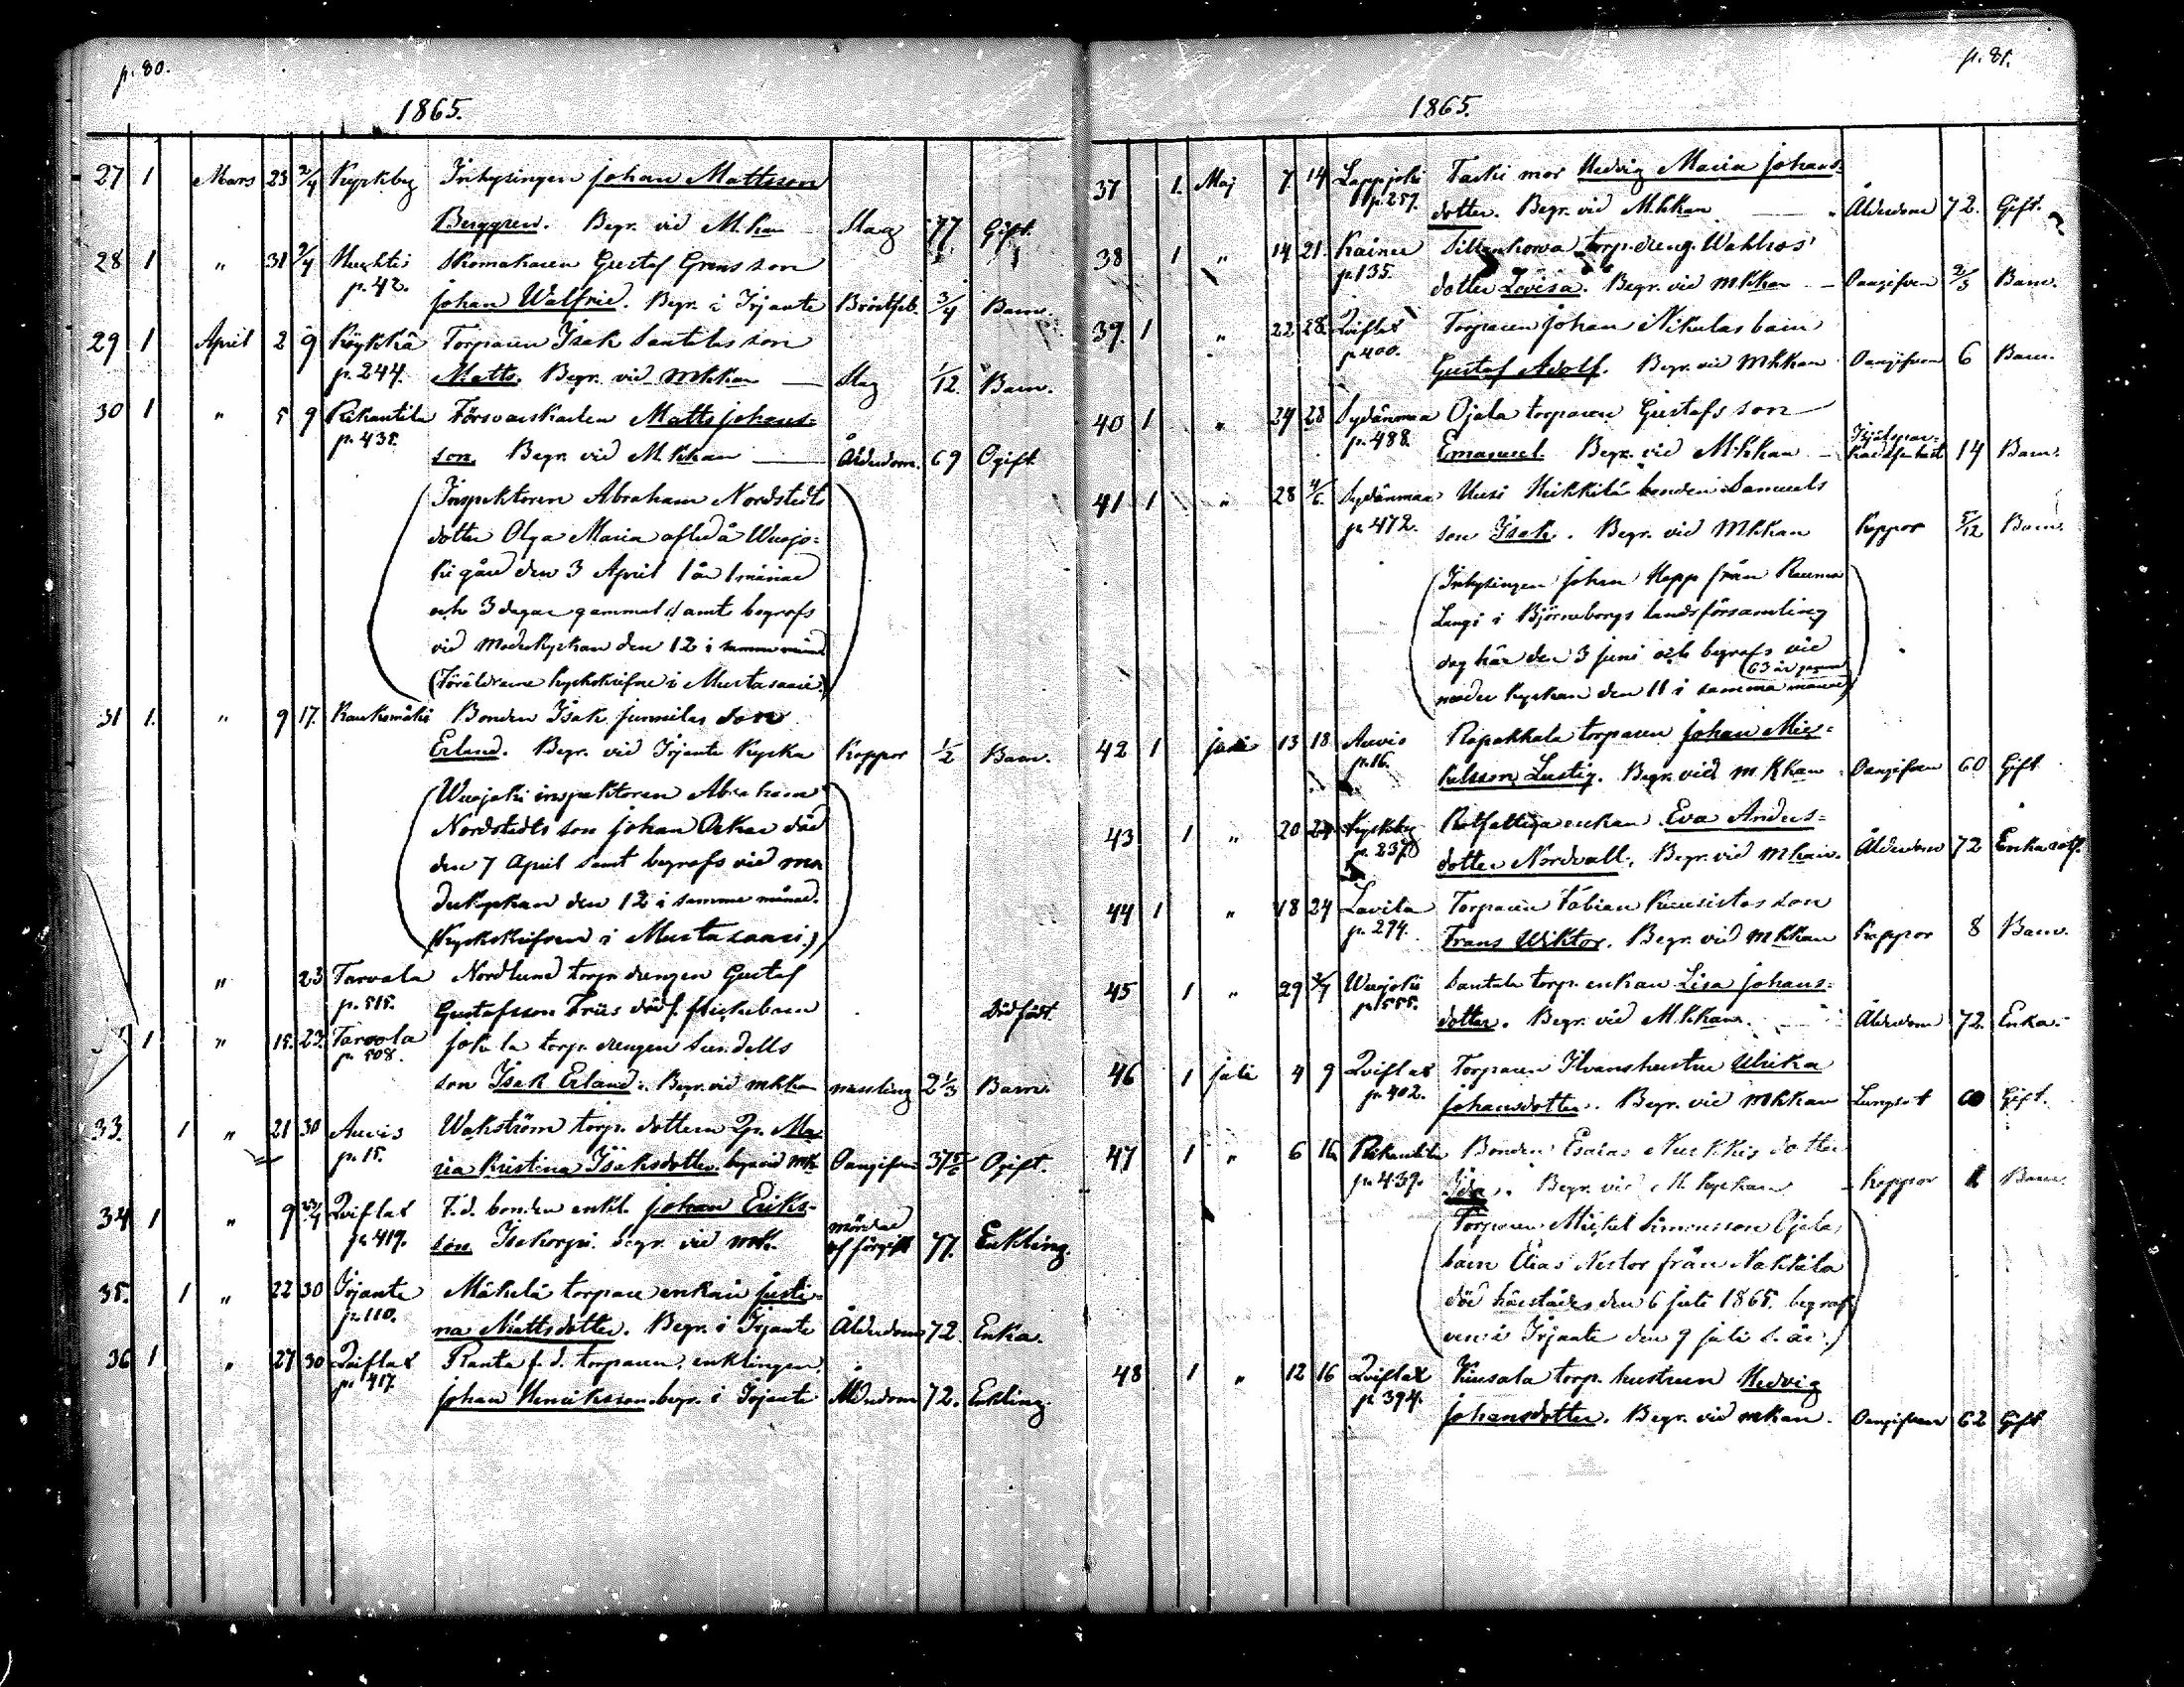 p. 80.
1865.
27 1 Mars 23 2/4 Kyrkby Inhysingen Johan Mattsson
Berggren. Begr. vid M.kan Slag 77 Gift.
28 1 " 31 2/4 Huhtis Skomakaren Gustaf Grens son
p. 42. Johan Walfrid. Begr. i Irjante Bröstfeb. 3/4 Barn.
29 1 April 2 9 Köykkä Torparen Isak Santalas son
p. 244. Matts. Begr. vid Mkkan Slag 1/12 Barn.
30 1 " 5 9 Pekantila Försvarskarlen Matts Johans-
p. 435. son. Begr. vid M.kkan Ålderdom. 69 Ogift.
(Inspektoren Abraham Nordstedts
dotter Olga Maria afled å Wuojo-
ki gård den 3 April 1 år 1 månad
och 3 dagar gammal samt begrofs
vid Moderkyrkan den 12 i samma månad
(Föräldrarne kyrkskrifne i Mustasaari.)
31 1. " 9 17. Kaukomäki Bonden Isak Junnilas son
Erland. Begr. vid Irjante Kyrka Koppor 1/2 Barn.
(Wuojoki inspektoren Abraham
Nordstedts son Johan Oskar död
den 7 April samt begrofs vid mo-
derkyrkan den 12 i samma månad.
(Kyrkskrifven i Mustasaari.))
" 23 Tarvala Nordlund torp. drengen Gustaf
p. 515. Gustafsson Friis dödf. flickebarn Dödfödt.
1 " 15. 23. Tarvola Jokela torp. drengen Sundells
p. 508. son Isak Erland. Begr. vid mkkan messling 2 1/3 Barn.
33. 1 " 21 30 Auvis Wakström torp. dottern Qp. Ma-
p. 15. ria Kristina Isaksdotter. begr. vid mk. Oangifven 37 5/6 Ogift.
34 1 " 9 Qviflax F.d. bonden enkl. Johan Eriks-
p. 419. son Isokorpi. Begr. vid mk. mördad af förgift 77. Enkling.
35. 1 " 22 30 Irjante Mäkelä torpare enkan Justi-
p. 110. na Mattsdotter. Begr. i Irjante Ålderdom 72. Enka.
36 1 " 27 30 Qviflax Ranta f.d. torparen, enklingen
p. 417. Johan Henriksson. begr. i Irjante Ålderdom 72. Enkling.
p. 81.
1865.
37 1. Maj 7 14 Lappjoki Taski mor Hedvig Maria Johans-
p. 257. dotter. Begr. vid M.kkan Ålderdom 72. Gift.
38 1 " 14 21. Kainu torp. dreng. Wahlros'
p. 135. dotter Lovisa. Begr. vid Mkkan Oangifven 2/3 Barn.
39. 1 " 22 28. Qviflax Torparen Johan Nikulas barn
p. 400. Gustaf Adolf. Begr. vid Mkkan Oangifven 6 Barn.
40 1 " 24 28 Sydänmaa Ojala torparen Gustafs son
p. 488. Emanuel. Begr. vid M.kkan 14 Barn.
41 1 " 28 4/6. Sydänmaa Uusi Heikkilä bonden Samuels
p. 472. son Isak. Begr. vid Mkkan Koppor 5/12 Barn.
(Inhysingen Johan Hopp från Rauma
Langi i Björneborgs landsförsamling
dog här den 3 Juni och begrofs vid
(63 år gamm.)
moder kyrkan den 11 i samma månad)
42 1 Juni 13 18 Auvis Rapakkala torparen Johan Mic-
p. 16. kelsson Lustig. Begr. vid m.kkan Oangifven 60 Gift
43 1 " 20 24 Kyrkby Rotfattiga enkan Eva Anders-
p. 237. dotter Nordvall. Begr. vid Mkan. Ålderdom 72 Enka rotf.
44 1 " 18 24 Lavila Torparen Fabian Kuusistos son
p. 274. Frans Wiktor. Begr. vid Mkkan Koppor 8 Barn.
45 1 " 29 2/7 Wuojoki Santala torp. enkan Lisa Johans-
p. 555. dotter. Begr. vid M.kkan. Ålderdom 72. Enka.
46 1 Juli 4 9 Qviflax Torparen Ilvans hustru Ulrika
p. 402. Johansdotter. Begr. vid Mkkan Lungsot Gift.
47 1 " 6 16 Pekantila Bonden Esaias Nurkkis dotter
p. 439. Ida. Begr. vid M. kyrkan Koppor 1 Barn.
(Torparen Mickel Simonsson Ojala,
barn Elias Nestor från Nakkila
död härstädes den 6 Juli 1865. begraf-
ven i Irjante den 9 Juli s. år.)
48 1 " 12 16 Qviflax Kiusala torp. hustrun Hedvig
p. 394. Johansdotter. Begr. vid mkan. Oangifven 62 Gift